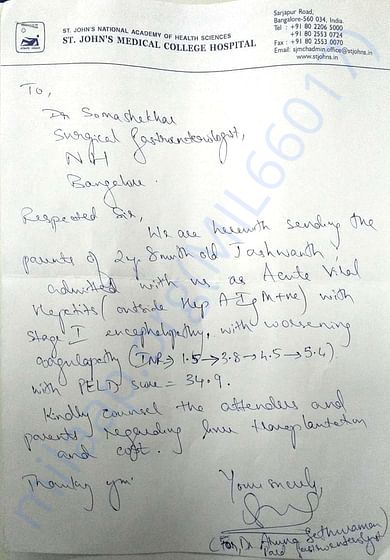 ST. JOHN'S NATIONAL ACADEMY OF HEALTH SCIENCES
ST. JOHN'S MEDICAL COLLEGE HOSPITAL
Sarjapur Road,
Bangalore-560 034, India.
Tel : +91 80 2206 5000
+91 80 2553 0724
Fax : +91 80 2553 0070
Email: sjmchadmin.office@stjohns.in
www.stjohns.in
To,
Dr Somashekhar
Surgical Gastroenterologist,
NH
Bangalore.
Respected Sir,
We are herewith sending the
parents of 2y 8 mnth old Jashwanth,
admitted with us as Acute Viral
Hepatitis (outside Hep A IgM +ve) with
Stage I encephalopathy, with worsening
coagulopathy (INR → 1.5 → 3.8 → 4.5 → 5.4)
with PELD score = 34.9.
Kindly counsel the attenders and
parents regarding liver transplantation
and cost.
Thanking you.
Yours sincerely,
(For, Dr Aruna Sethuraman
Paed Gastroenterologist
milaap.org (MIL66017)